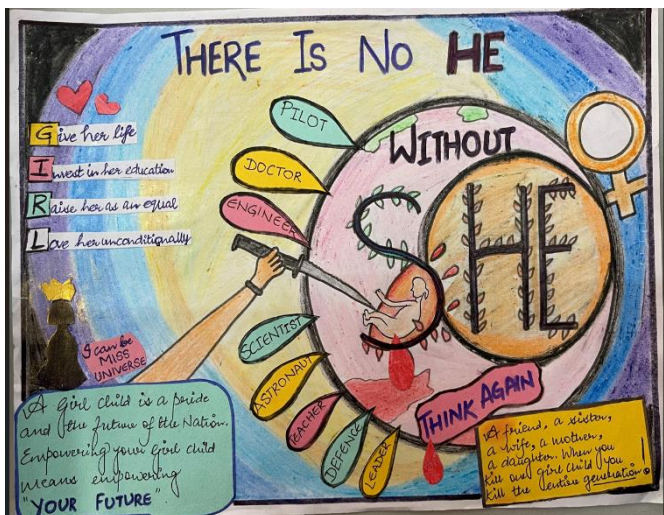 THERE IS NO HE
WITHOUT
SHE
Give her life
Invest in her education
Raise her as an equal
Love her unconditionally
PILOT
DOCTOR
ENGINEER
SCIENTIST
ASTRONAUT
TEACHER
DEFENCE
LEADER
I can be
MISS
UNIVERSE
THINK AGAIN
A Girl child is a pride
and the future of the Nation.
Empowering your Girl child
means empowering
"YOUR FUTURE"
A friend, a sister,
a wife, a mother,
a daughter. When you
kill one girl child you
kill the entire generation!